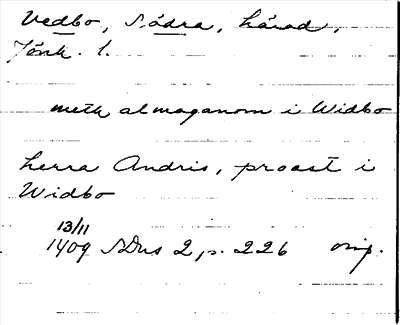 Vedbo, Södra, härad,
Jönk. l.
meth almoganom i Widbo
herra Andris, proast i
Widbo
13/11
1409 SDns 2, p. 226 orig.